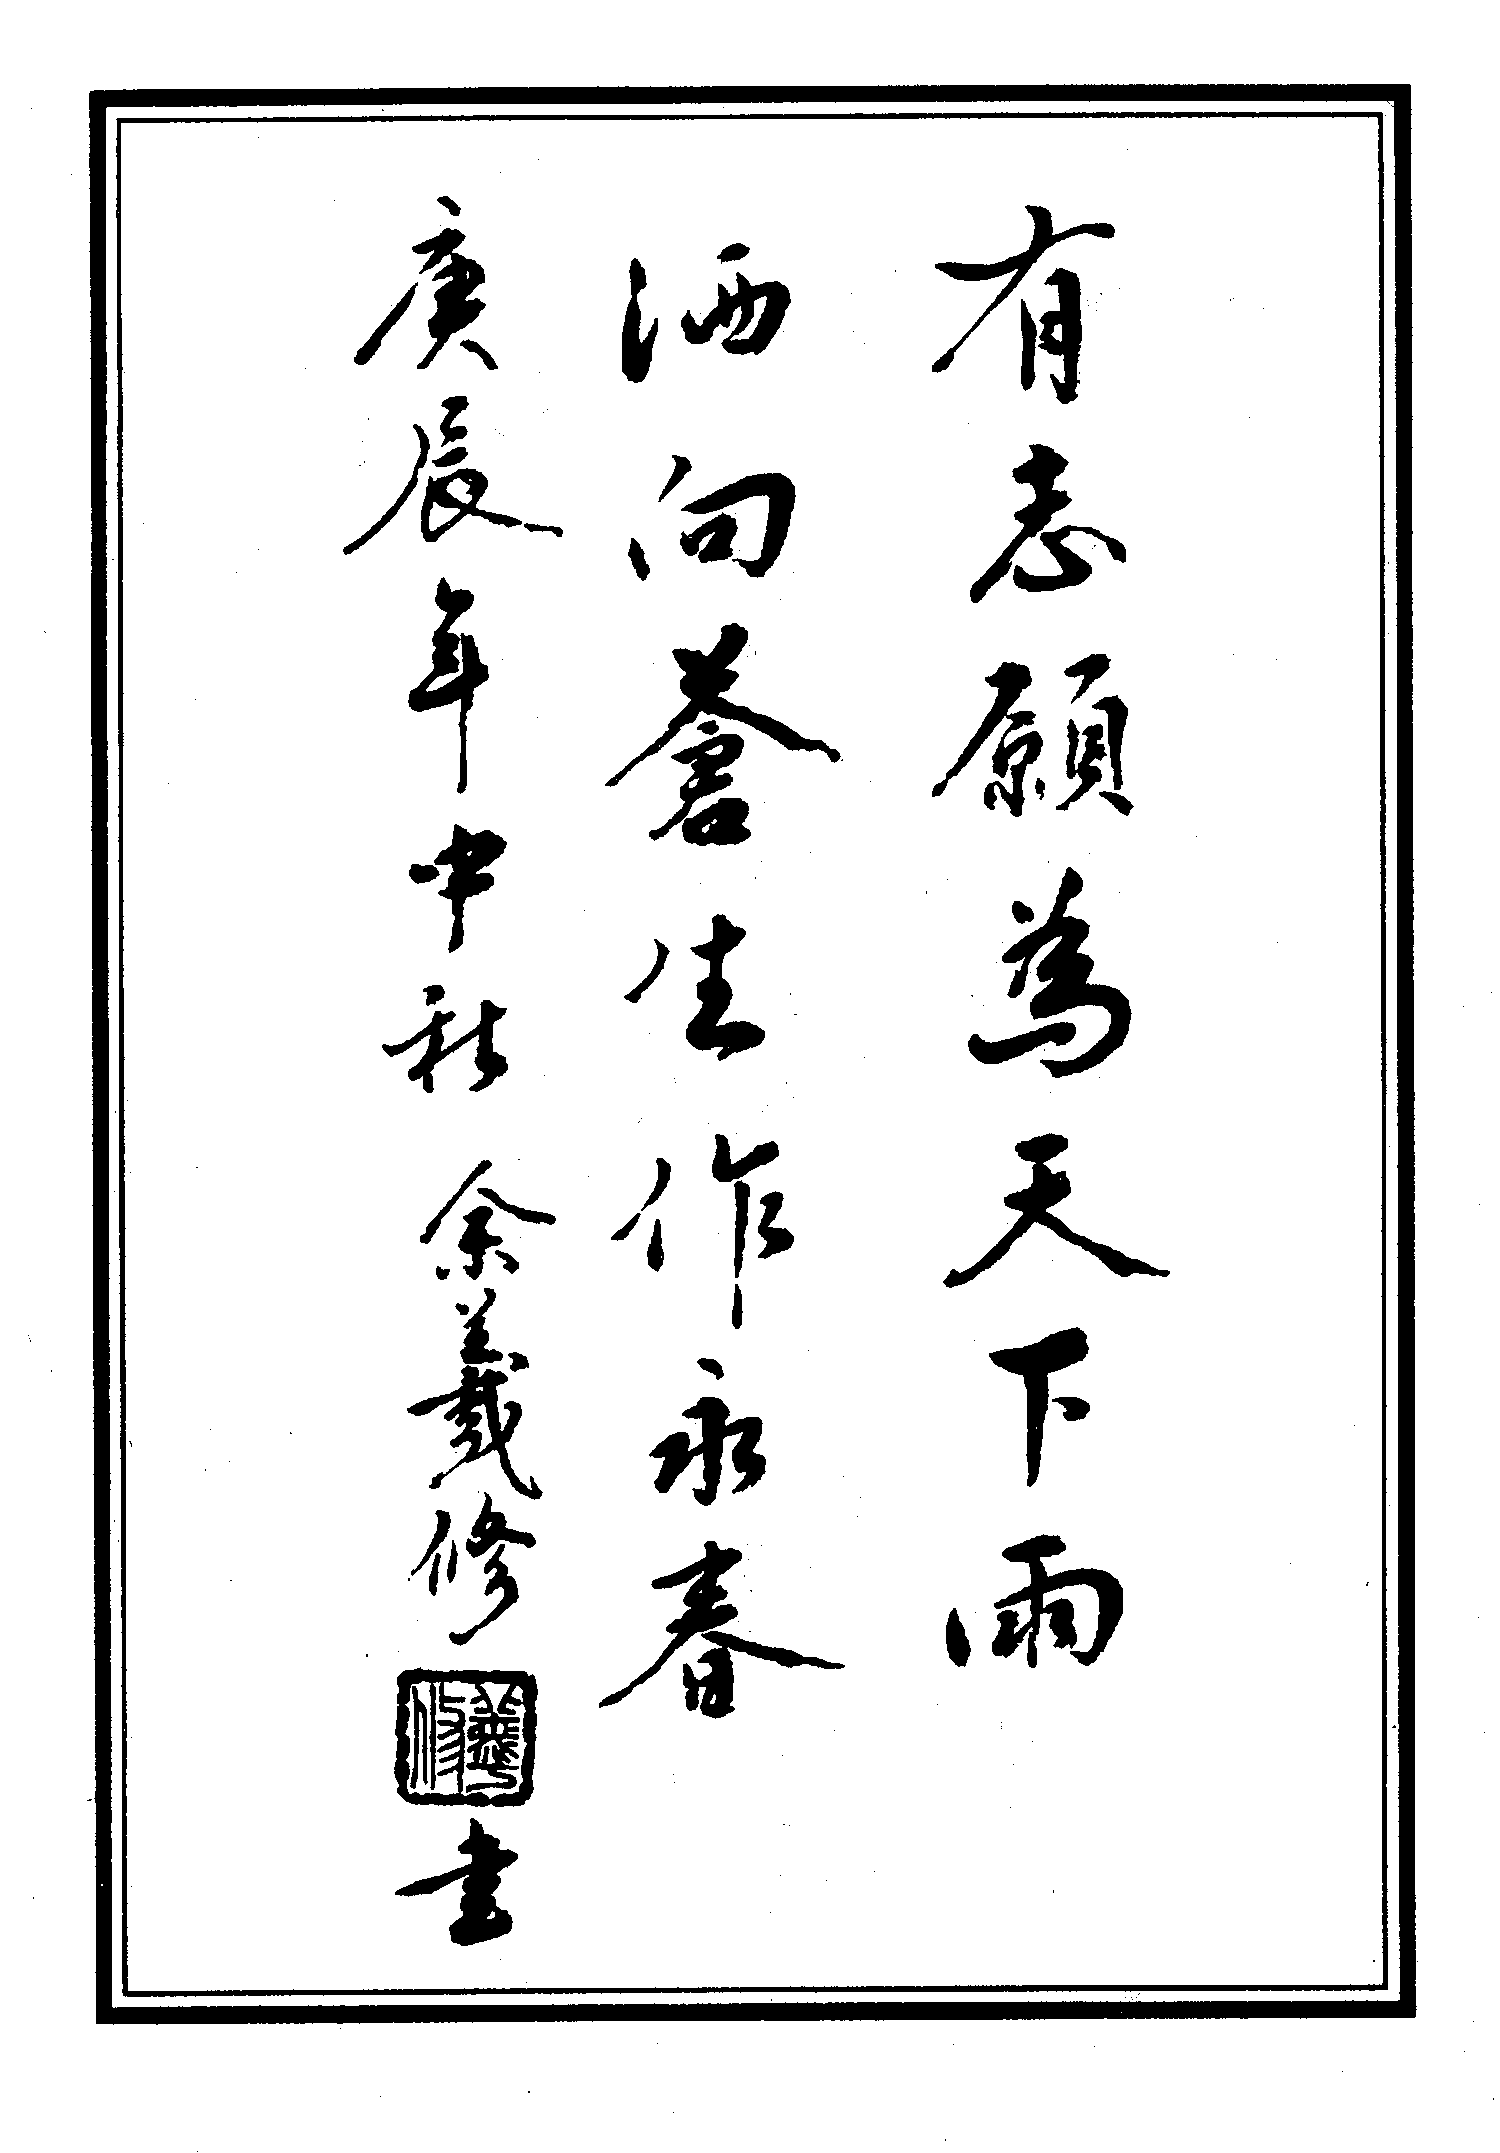 有志願為天下雨
洒向蒼生作永春
庚辰年中秋 余義修書
義修